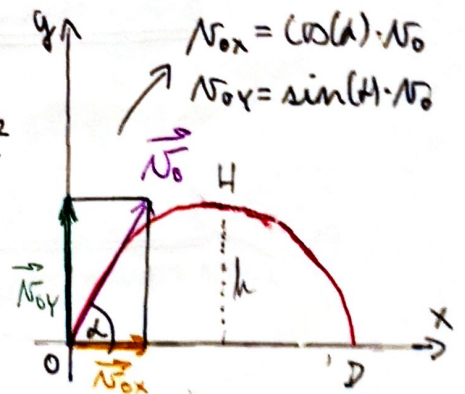 y
v₀ₓ = cos(α)·v₀
v₀y = sin(α)·v₀
2
v₀
H
v₀y
h
α
x
O
v₀ₓ
D